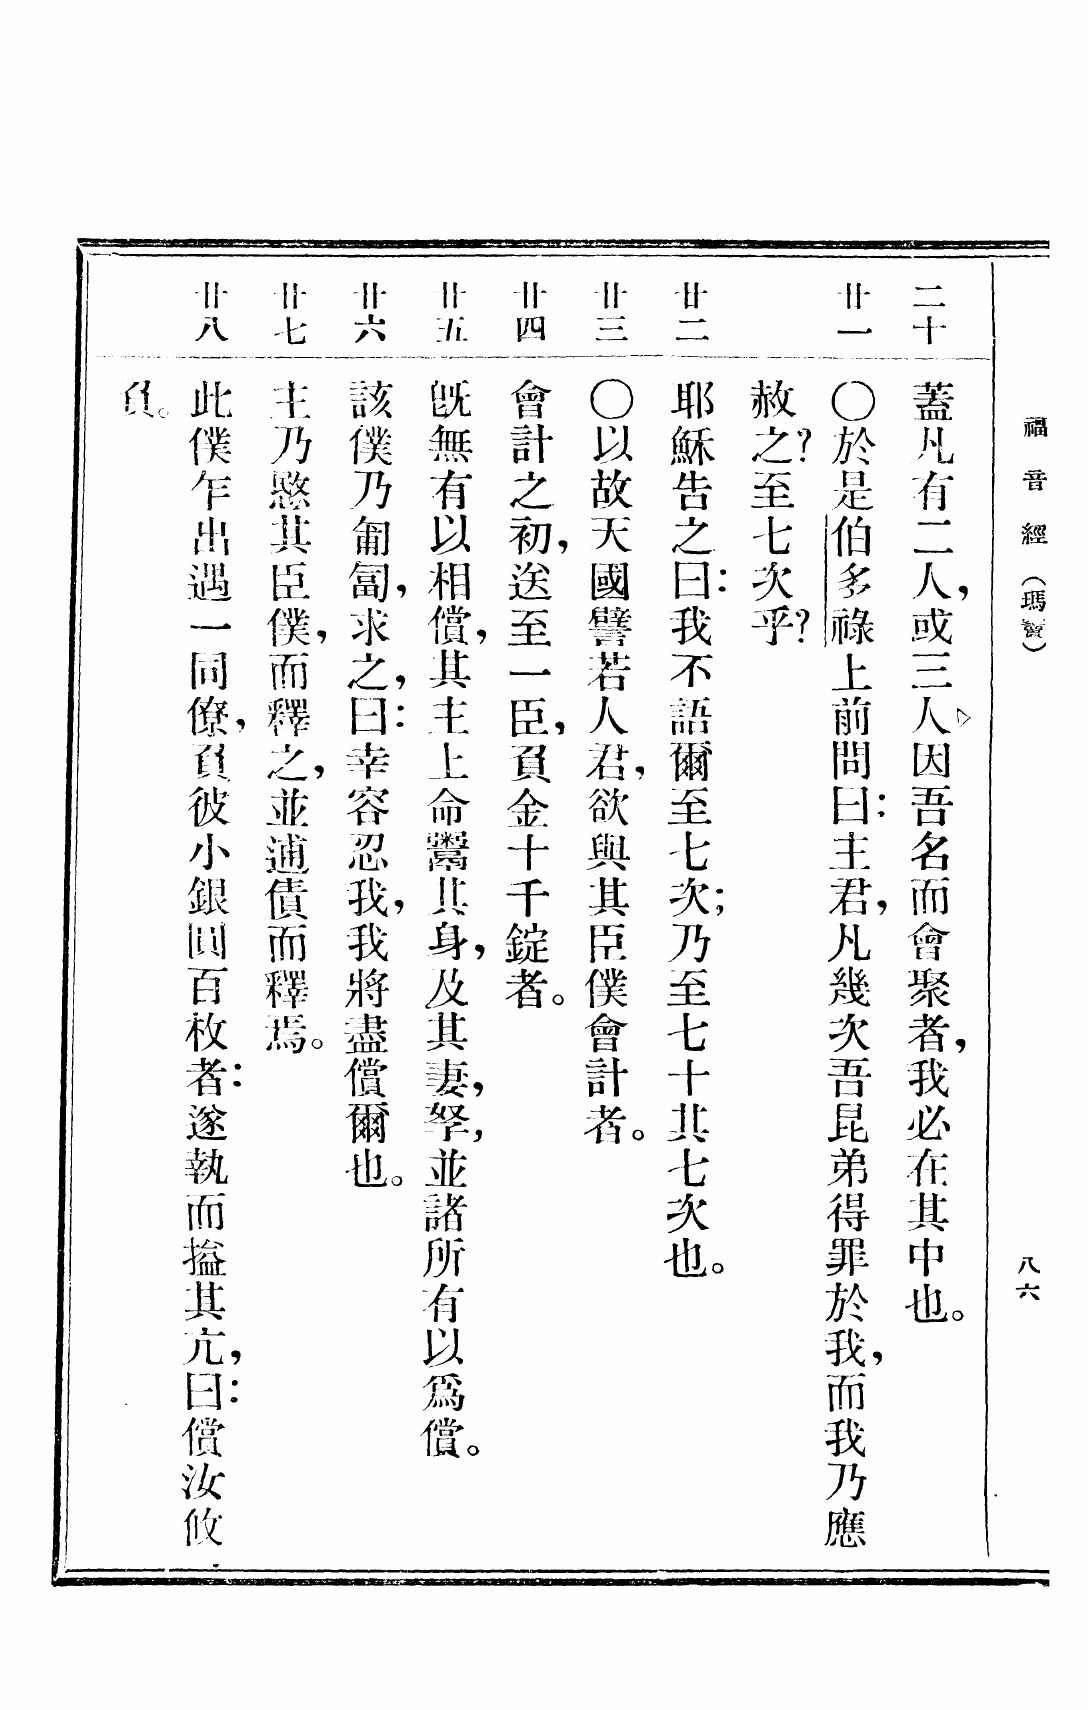 福音經（瑪竇）　八六
二十　蓋凡有二人，或三人因吾名而會聚者，我必在其中也。
廿一　〇於是伯多祿上前問曰：主君，凡幾次吾昆弟得罪於我，而我乃應
赦之？至七次乎？
廿二　耶穌告之曰：我不語爾至七次；乃至七十其七次也。
廿三　〇以故天國譬若人君，欲與其臣僕會計者。
廿四　會計之初，送至一臣，負金十千錠者。
廿五　旣無有以相償，其主上命鬻其身，及其妻，孥，並諸所有以爲償。
廿六　該僕乃匍匐，求之，曰：幸容忍我，我將盡償爾也。
廿七　主乃愍其臣僕，而釋之，並逋債而釋焉。
廿八　此僕乍出遇一同僚，負彼小銀圓百枚者：遂執而搤其亢，曰：償汝攸
負。